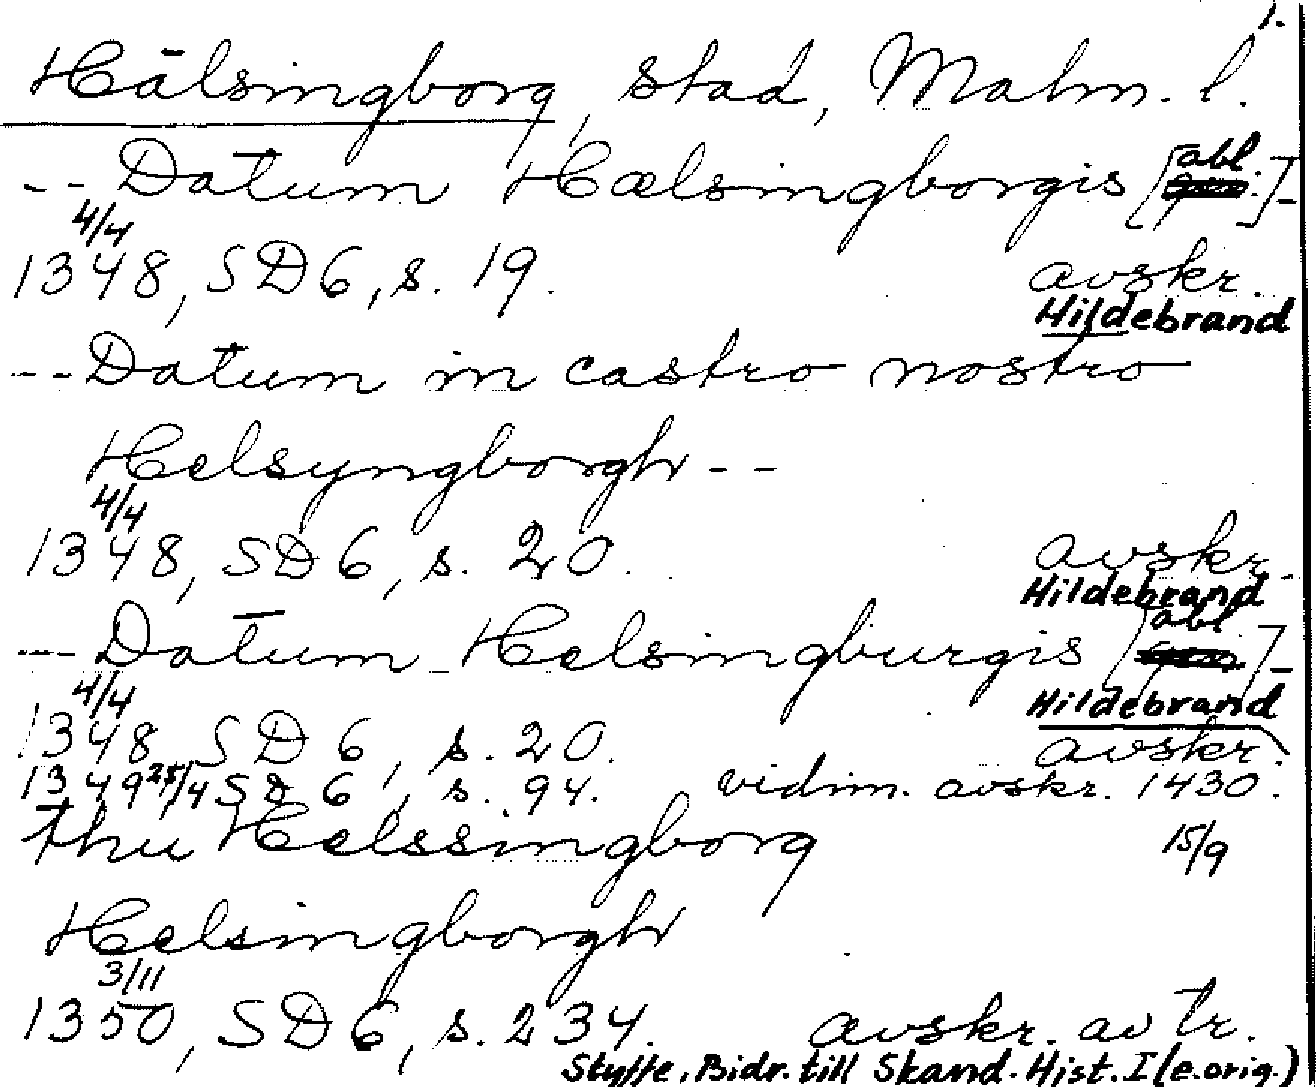 1.
Hälsingborg, stad, Malm. l.
-- Datum Hælsingborgis [abl.]-
4/4
1348, SD 6, s. 19. avskr.
Hildebrand
-- Datum in castro nostro
Helsyngborgh --
4/4
1348, SD 6, s. 20. avskr.
Hildebrand
-- Datum Helsingburgis [abl.]-
4/4 Hildebrand
1348 SD 6, s. 20. avskr.
1349 25/4 SD 6, s. 94. vidim. avskr. 1430.
thu Helssingborg 15/9
Helsingborgh
3/11
1350, SD 6, s. 234. avskr. av tr.
Styffe. Bidr. till Skand. Hist. I (e. orig.)